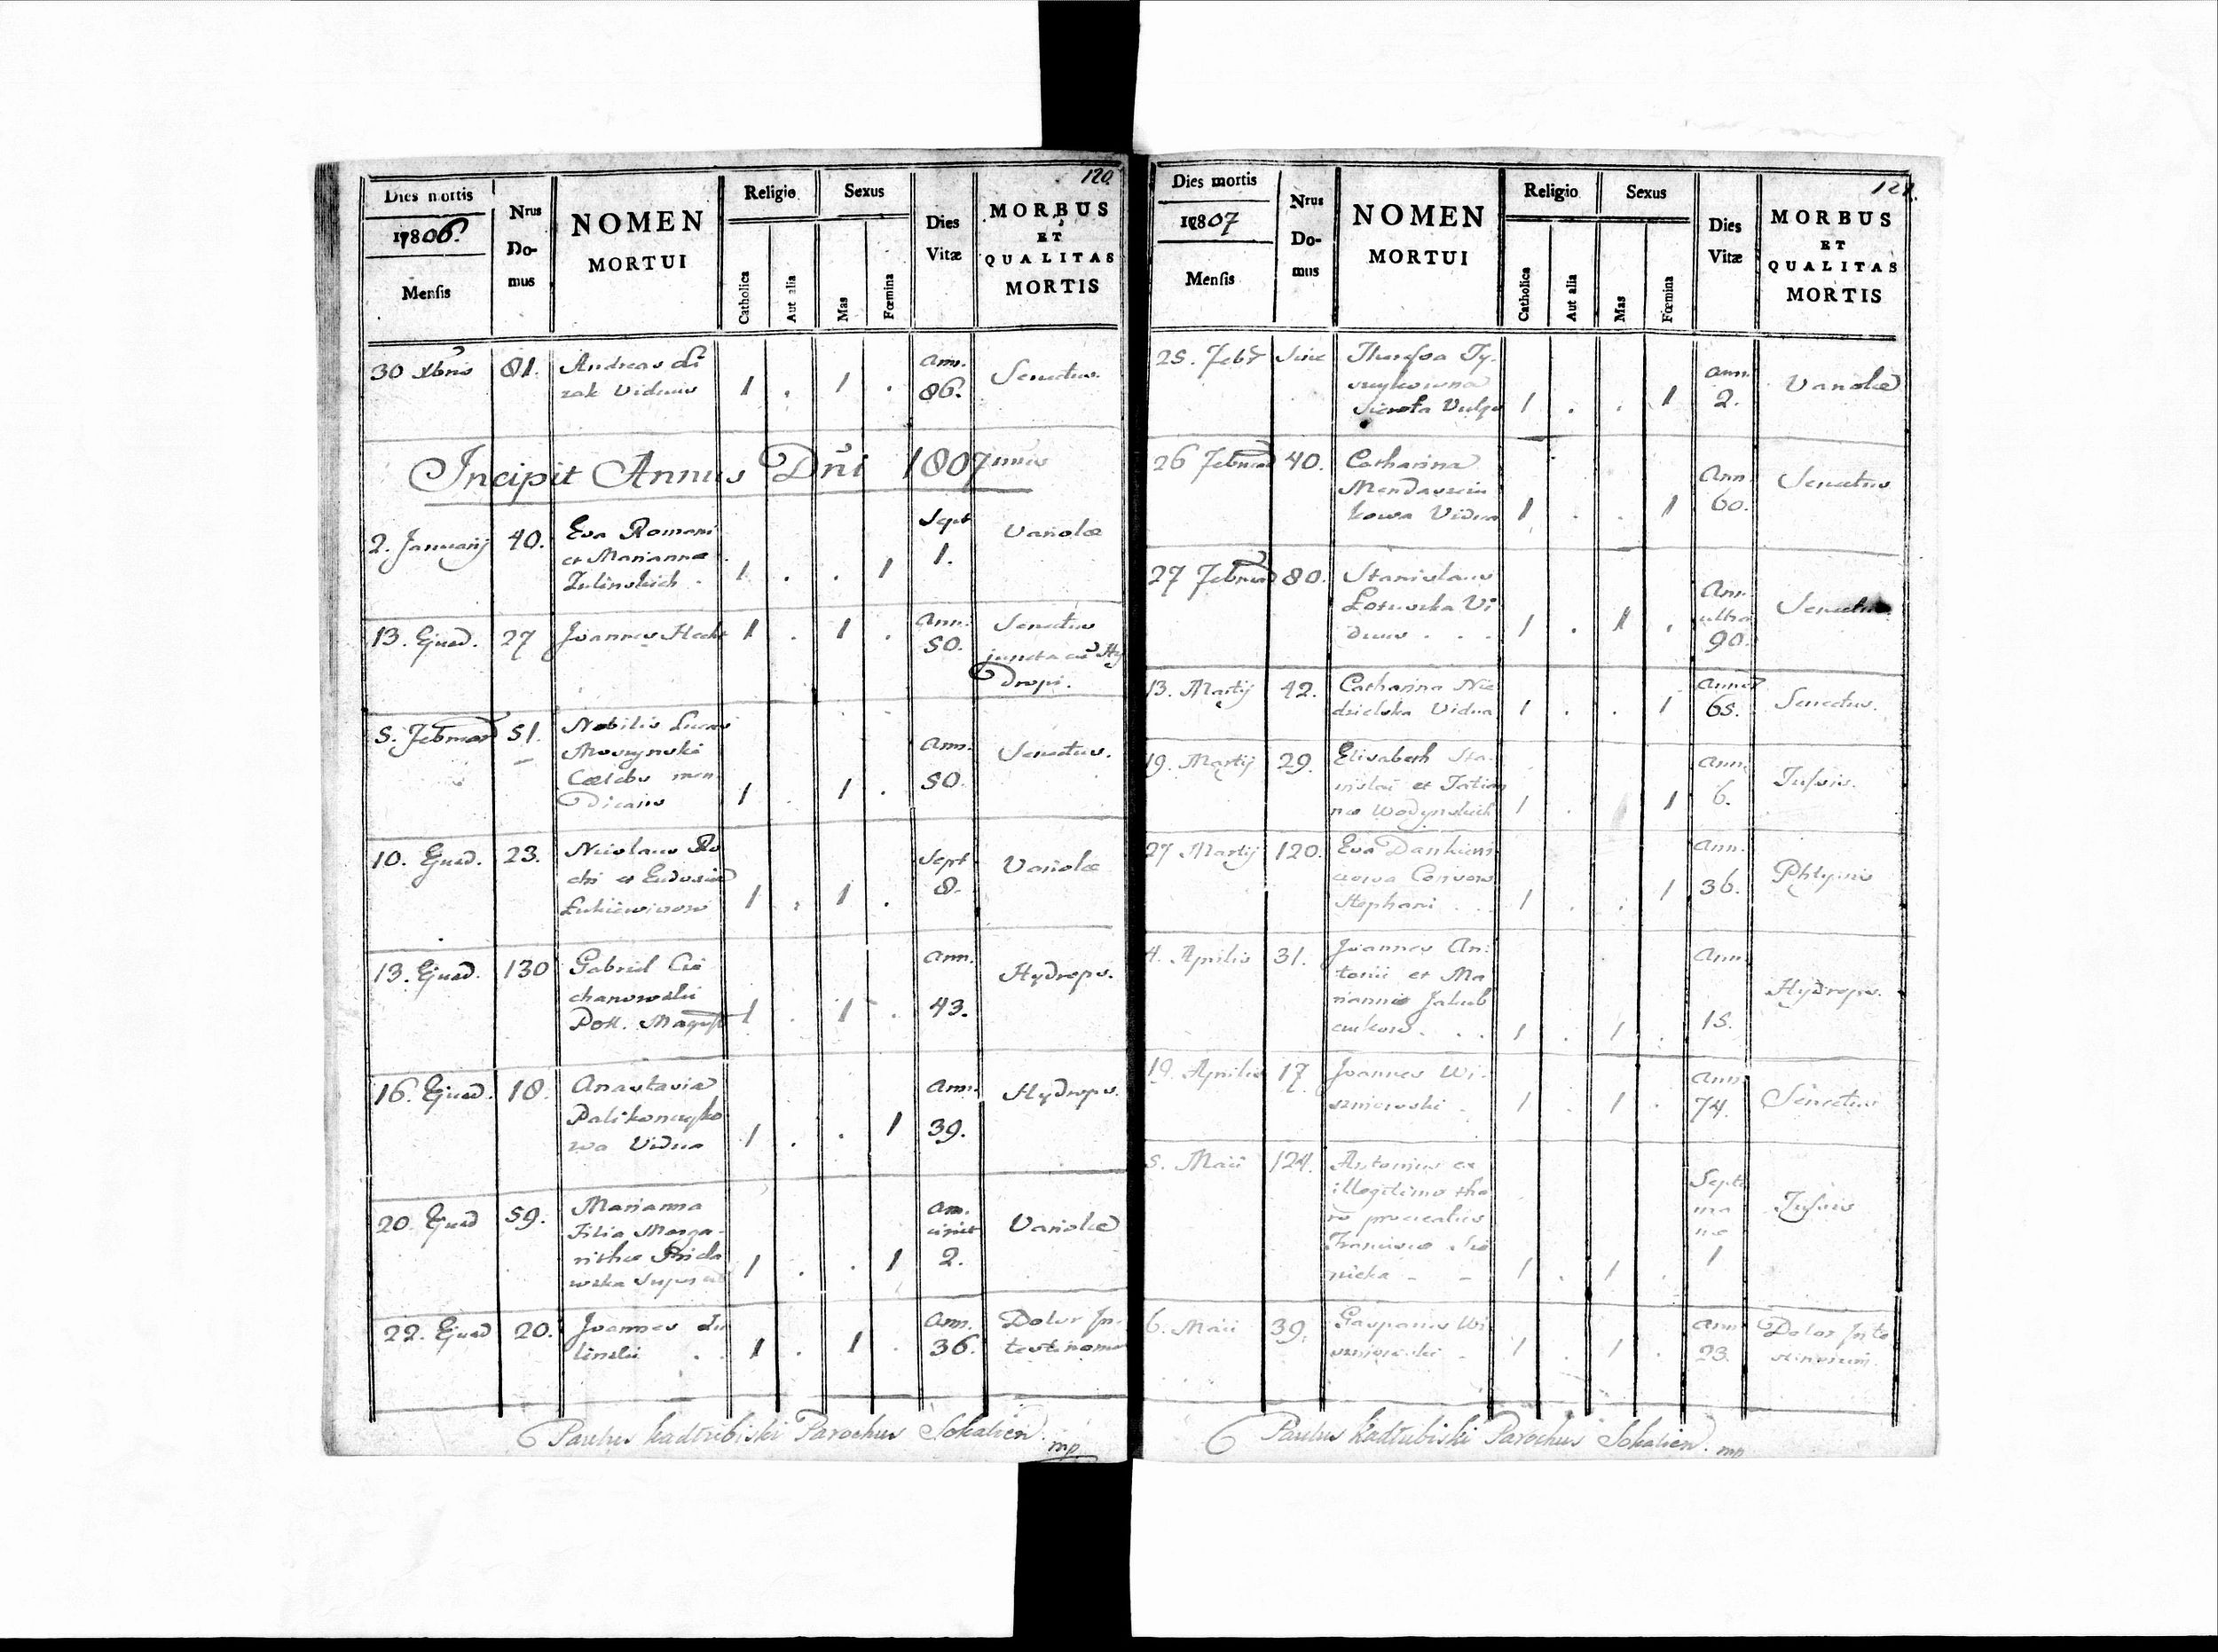 120.
Dies mortis
1806.
Mensis
Nrus
Do-
mus
NOMEN
MORTUI
Religio
Catholica
Aut alia
Sexus
Mas
Fœmina
Dies
Vitæ
MORBUS
ET
QUALITAS
MORTIS
30 Xbris 81. Andreas
zak Viduus 1 . 1 . Ann. 86. Senectus.
Incipit Annus Dñi 1807
2. Januarij 40. Eva Romani
et Mariannæ
Zulinskich . 1 . . 1 Sept 1. Variolæ
13. Ejusd. 27 Joannes 1 . 1 . Ann. 50. Senectus
juncta cũ Hy
dropi.
5. Februar 51. Nobilis Lucas
Moszynski
Cælebs men
dicans 1 . 1 . Ann. 50. Senectus.
10. Ejusd. 23. Nicolaus Ro
chi et Eudoxiæ
1 . 1 . Sept 8. Variolæ
13. Ejusd. 130 Gabriel Cie
chanowski
1 . 1 . Ann. 43. Hydrops.
16. Ejusd. 18. Anastasia
Palikonczyko
wa Vidua 1 . . 1 Ann. 39. Hydrops.
20. Ejusd 59. Marianna
Filia Marga-
rithæ
1 . . 1 An. 2. Variolæ
22. Ejusd 20. Joannes
linski . . 1 . 1 . Ann. 36. Dolor In-
testinorum
Paulus Kadłubiski Parochus Sokalien. mp
121.
Dies mortis
1807
Mensis
Nrus
Do-
mus
NOMEN
MORTUI
Religio
Catholica
Aut alia
Sexus
Mas
Fœmina
Dies
Vitæ
MORBUS
ET
QUALITAS
MORTIS
25. Febr Sine Theressa Ty-
szykowna
Sierota Vulgo 1 . . 1 Ann. 2. Variolæ
26 Februar 40. Catharina
kowa Vidua 1 . . 1 Ann 60. Senectus
27 Februar 80. Stanislaus
Vi
duus . . . 1 . 1 . Ann. ultra 90. Senectus
13. Martij 42. Catharina Nie
dzielska Vidua 1 . . 1 Annor 65. Senectus.
19. Martij 29. Elisabeth Sta-
nislai et Tatian
næ Wodynskich 1 . . 1 Ann. 6. Tussis.
27 Martij 120. Eva Dankiewi
czowa Consors
Stephani . . 1 . . 1 Ann. 36. Phtysis
4. Aprilis 31. Joannes An-
tonii et Ma
riannæ Jakub
czukow . . . 1 . 1 . Ann 15. Hydrops.
Aprilis 17 Joannes Wi-
szniowski . 1 . 1 . Ann. 74. Senectus
5. Maii 124. Antonius ex
illegitimo tho
ro procreatus
nicka - - 1 . 1 . Septi
ma
næ
1 Tussis
6. Maii 39. Gasparus Wi
szniowski . 1 . 1 . Ann 23. Dolor Inte
stinorum.
Paulus Kadłubiski Parochus Sokalien. mp